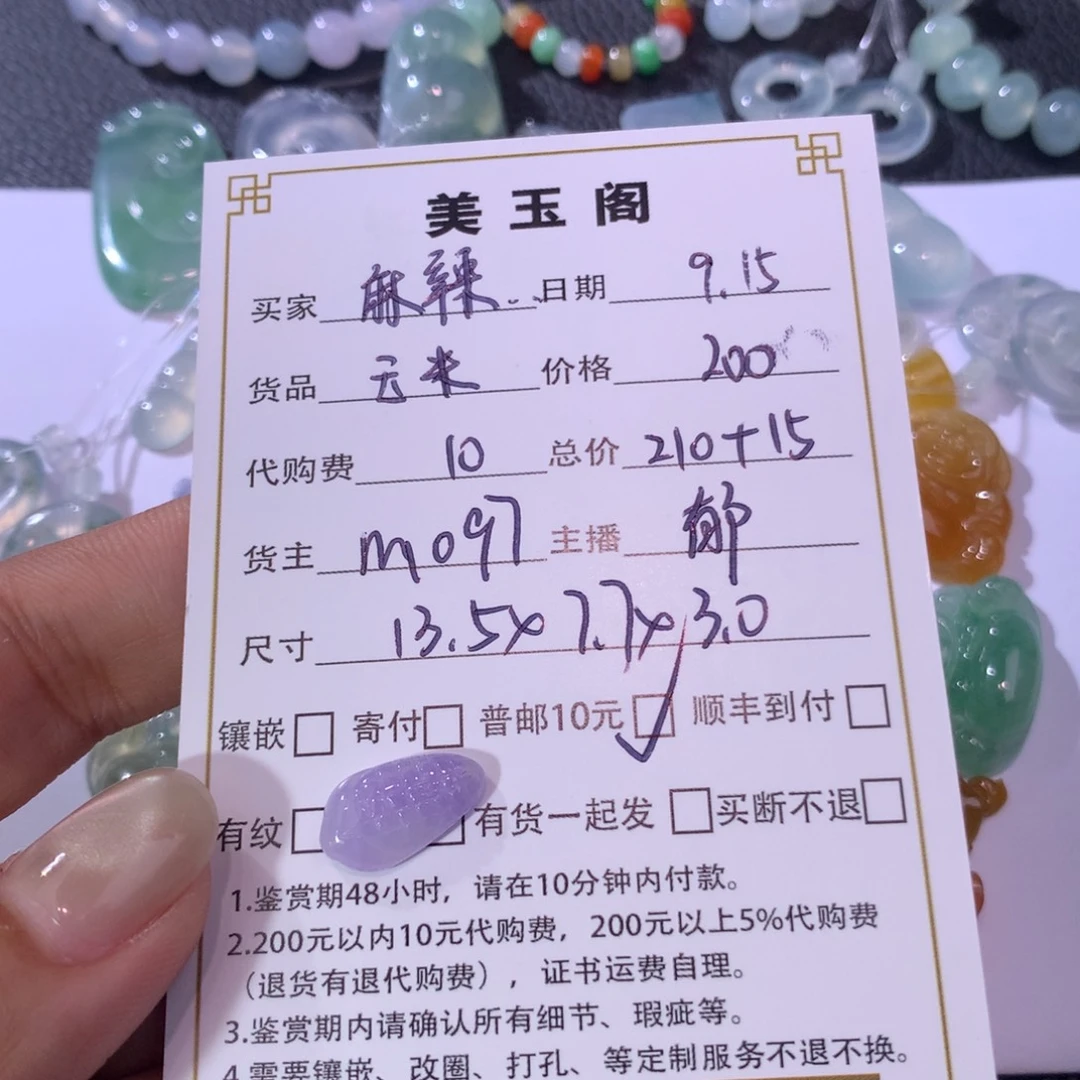 美玉阁
买家 麻辣.. 日期 9.15
货品 云米 价格 200
代购费 10 总价 210+15
货主 m097 主播 郁
尺寸 13.5x7.7x3.0
镶嵌□ 寄付□ 普邮10元☑ 顺丰到付□
有纹□ 有货一起发□ 买断不退□
1.鉴赏期48小时，请在10分钟内付款。
2.200元以内10元代购费，200元以上5%代购费
（退货有退代购费），证书运费自理。
3.鉴赏期内请确认所有细节、瑕疵等。
4.需要镶嵌、改圈、打孔、等定制服务不退不换。